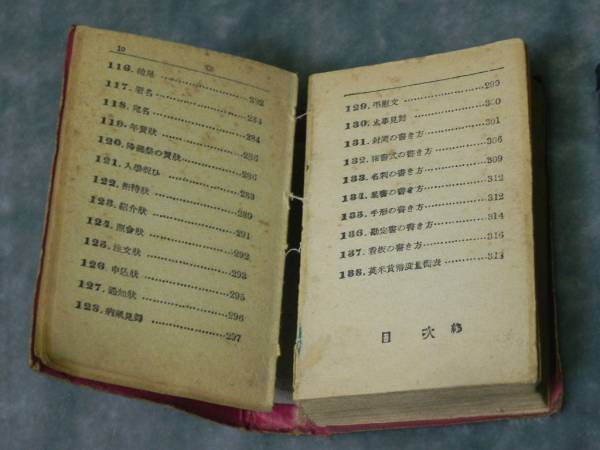 10
116. 結尾 ……… 282
117. 署名 ……… 284
118. 宛名 ……… 284
119. 年賀狀 ……… 286
120. 降誕祭の賀狀 ……… 286
121. 入學祝ひ ……… 288
122. 招待狀 ……… 289
123. 紹介狀 ……… 291
124. 照會狀 ……… 292
125. 注文狀 ……… 293
126. 申込狀 ……… 295
127. 通知狀 ……… 296
128. 病氣見舞 ……… 297
129. 弔慰文 ……… 299
130. 火事見舞 ……… 300
131. 封筒の書き方 ……… 301
132. の書き方 ……… 306
133. 名刺の書き方 ……… 309
134. の書き方 ……… 312
135. 手形の書き方 ……… 312
136. 勘定書の書き方 ……… 314
137. 看板の書き方 ……… 316
138. 英米貨幣度量衡表 ……… 318
目次終